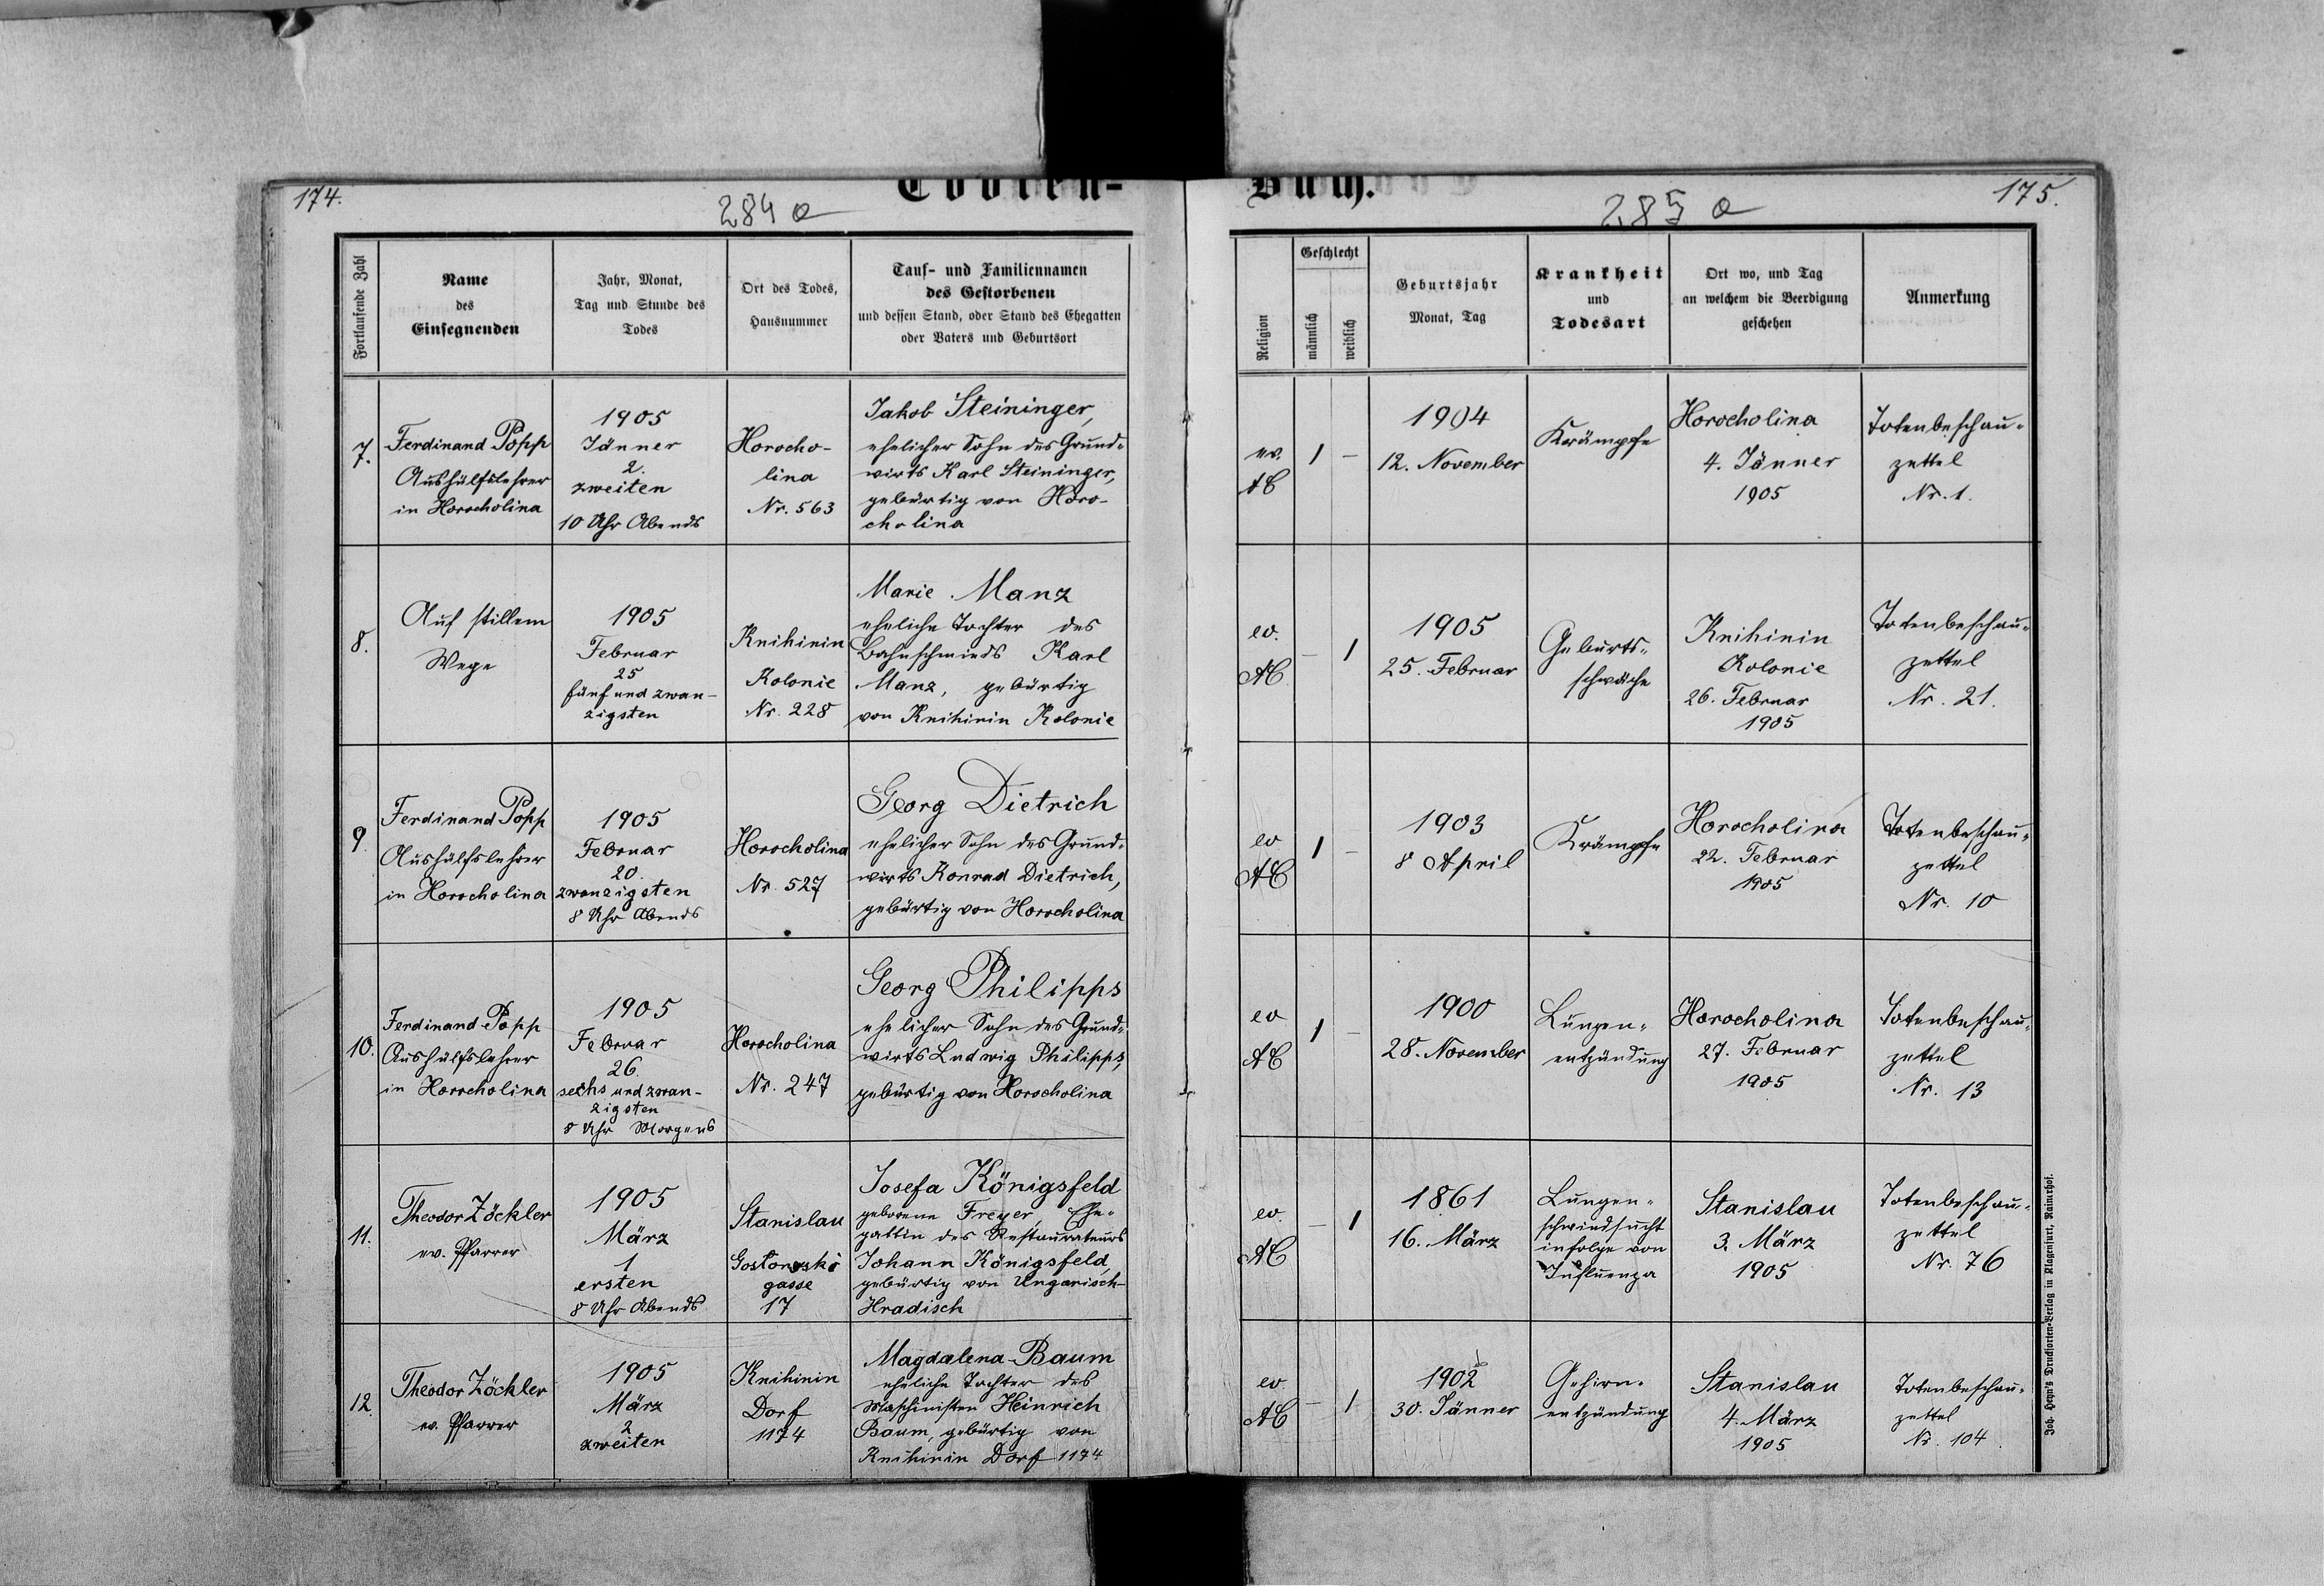 174.
284 a
Todten-
Fortlaufende Zahl
Name
des
Einsegnenden
Jahr, Monat,
Tag und Stunde des
Todes
Ort des Todes,
Hausnummer
Tauf- und Familiennamen
des Gestorbenen
und dessen Stand, oder Stand des Ehegatten
oder Vaters und Geburtsort
7.
Ferdinand Popp
Aushülfslehrer
in Horocholina
1905
Jänner
2.
zweiten
10 Uhr Abends
Horocho-
lina
Nr. 563
Jakob Steininger,
ehelicher Sohn des Grund-
wirts Karl Steininger,
gebürtig von Horo-
cholina
8.
Auf stillem
Wege
1905
Februar
25
fünf und zwan-
zigsten
Knihinin
Kolonie
Nr. 228
Marie Manz
eheliche Tochter des
Bahnschmieds Karl
Manz, gebürtig
von Knihinin Kolonie
9.
Ferdinand Popp
Aushülfslehrer
in Horocholina
1905
Februar
20.
zwanzigsten
8 Uhr Abends
Horocholina
Nr. 527
Georg Dietrich
ehelicher Sohn des Grund-
wirts Konrad Dietrich,
gebürtig von Horocholina
10.
Ferdinand Popp
Aushülfslehrer
in Horocholina
1905
Februar
26.
sechs und zwan-
zigsten
8 Uhr Morgens
Horocholina
Nr. 247
Georg Philipps
ehelicher Sohn des Grund-
wirts Ludwig Philipps,
gebürtig von Horocholina
11.
Theodor Zöckler
ev. Pfarrer
1905
März
1
ersten
8 Uhr Abends
Stanislau
gasse
17
Josefa Königsfeld
geborene Freyer, Ehe-
gattin des Restaurateurs
Johann Königsfeld,
gebürtig von Ungarisch-
Hradisch
12.
Theodor Zöckler
ev. Pfarrer
1905
März
2
zweiten
Knihinin
Dorf
1174
Magdalena Baum
eheliche Tochter des
Maschinisten Heinrich
Baum, gebürtig von
Knihinin Dorf 1174
Buch.
285 a
175.
Religion
Geschlecht
männlich
weiblich
Geburtsjahr
Monat, Tag
Krankheit
und
Todesart
Ort wo, und Tag
an welchem die Beerdigung
geschehen
Anmerkung
ev.
AC
1
–
1904
12. November
Krämpfe
Horocholina
4. Jänner
1905
Totenbeschau-
zettel
Nr. 1.
ev.
AC
–
1
1905
25. Februar
Geburts-
schwäche
Knihinin
Kolonie
26. Februar
1905
Totenbeschau-
zettel
Nr. 21.
ev
AC
1
–
1903
8 April
Krämpfe
Horocholina
22. Februar
1905
Totenbeschau-
zettel
Nr. 10
ev
AC
1
–
1900
28. November
Lungen-
entzündung
Horocholina
27. Februar
1905
Totenbeschau-
zettel
Nr. 13
ev.
AC
–
1
1861
16. März
Lungen-
schwindsucht
infolge von
Influenza
Stanislau
3. März
1905
Totenbeschau-
zettel
Nr. 76
ev.
AC
–
1
1902
30. Jänner
Gehirn-
entzündung
Stanislau
4. März
1905
Totenbeschau-
zettel
Nr. 104
Joh. Heyn's Drucksorten-Verlag in Klagenfurt, Rainerhof.